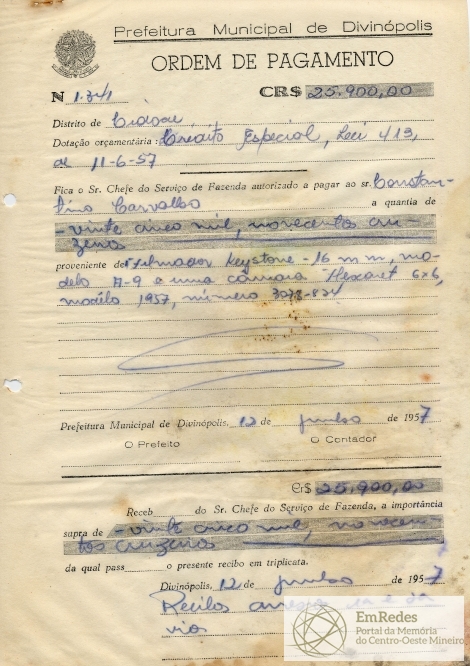 Prefeitura Municipal de Divinópolis
ORDEM DE PAGAMENTO
N 1.341 CR$ 25.900,00
Distrito de Cidade,
Dotação orçamentária: Credito Especial, Lei 419,
de 11-6-57
Fica o Sr. Chefe do Serviço de Fazenda autorizado a pagar ao sr. Constan-
tino Carvalho a quantia de
- vinte cinco mil, novecentos cru-
zeiros
proveniente de Filmador Keystone - 16 mm, mo-
delo A-9 e uma câmara Flexaret 6x6,
modêlo 1957, número
Prefeitura Municipal de Divinópolis, 12 de junho de 1957
O Prefeito O Contador
Cr$ 25.900,00
Receb do Sr. Chefe do Serviço de Fazenda, a importância
supra de - vinte cinco mil, novecen-
tos cruzeiros
da qual pass o presente recibo em triplicata.
Divinópolis, 12 de junho de 1957
Recibo
EmRedes
Portal da Memória
do Centro-Oeste Mineiro